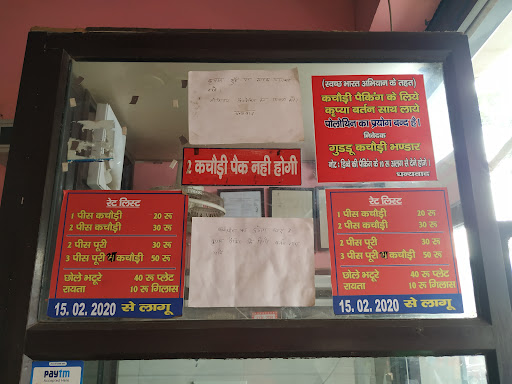 (स्वच्छ भारत अभियान के तहत)
कचौड़ी पैकिंग के लिये
कृप्या बर्तन साथ लाये
पोलोथिन का प्रयोग बन्द है।
निवेदक
गुड्डू कचौड़ी भण्डार
नोट: डिब्बे की पैकिंग के 10 रु अलग से देने होंगे।
धन्यवाद
2 कचौड़ी पैक नही होगी
रेट लिस्ट
1 पीस कचौड़ी 20 रू
2 पीस कचौड़ी 30 रू
2 पीस पूरी 30 रू
3 पीस पूरी या कचौड़ी 50 रू
छोले भटूरे 40 रू प्लेट
रायता 10 रू गिलास
15. 02. 2020 से लागू
रेट लिस्ट
1 पीस कचौड़ी 20 रू
2 पीस कचौड़ी 30 रू
2 पीस पूरी 30 रू
3 पीस पूरी या कचौड़ी 50 रू
छोले भटूरे 40 रू प्लेट
रायता 10 रू गिलास
15. 02. 2020 से लागू
paytm